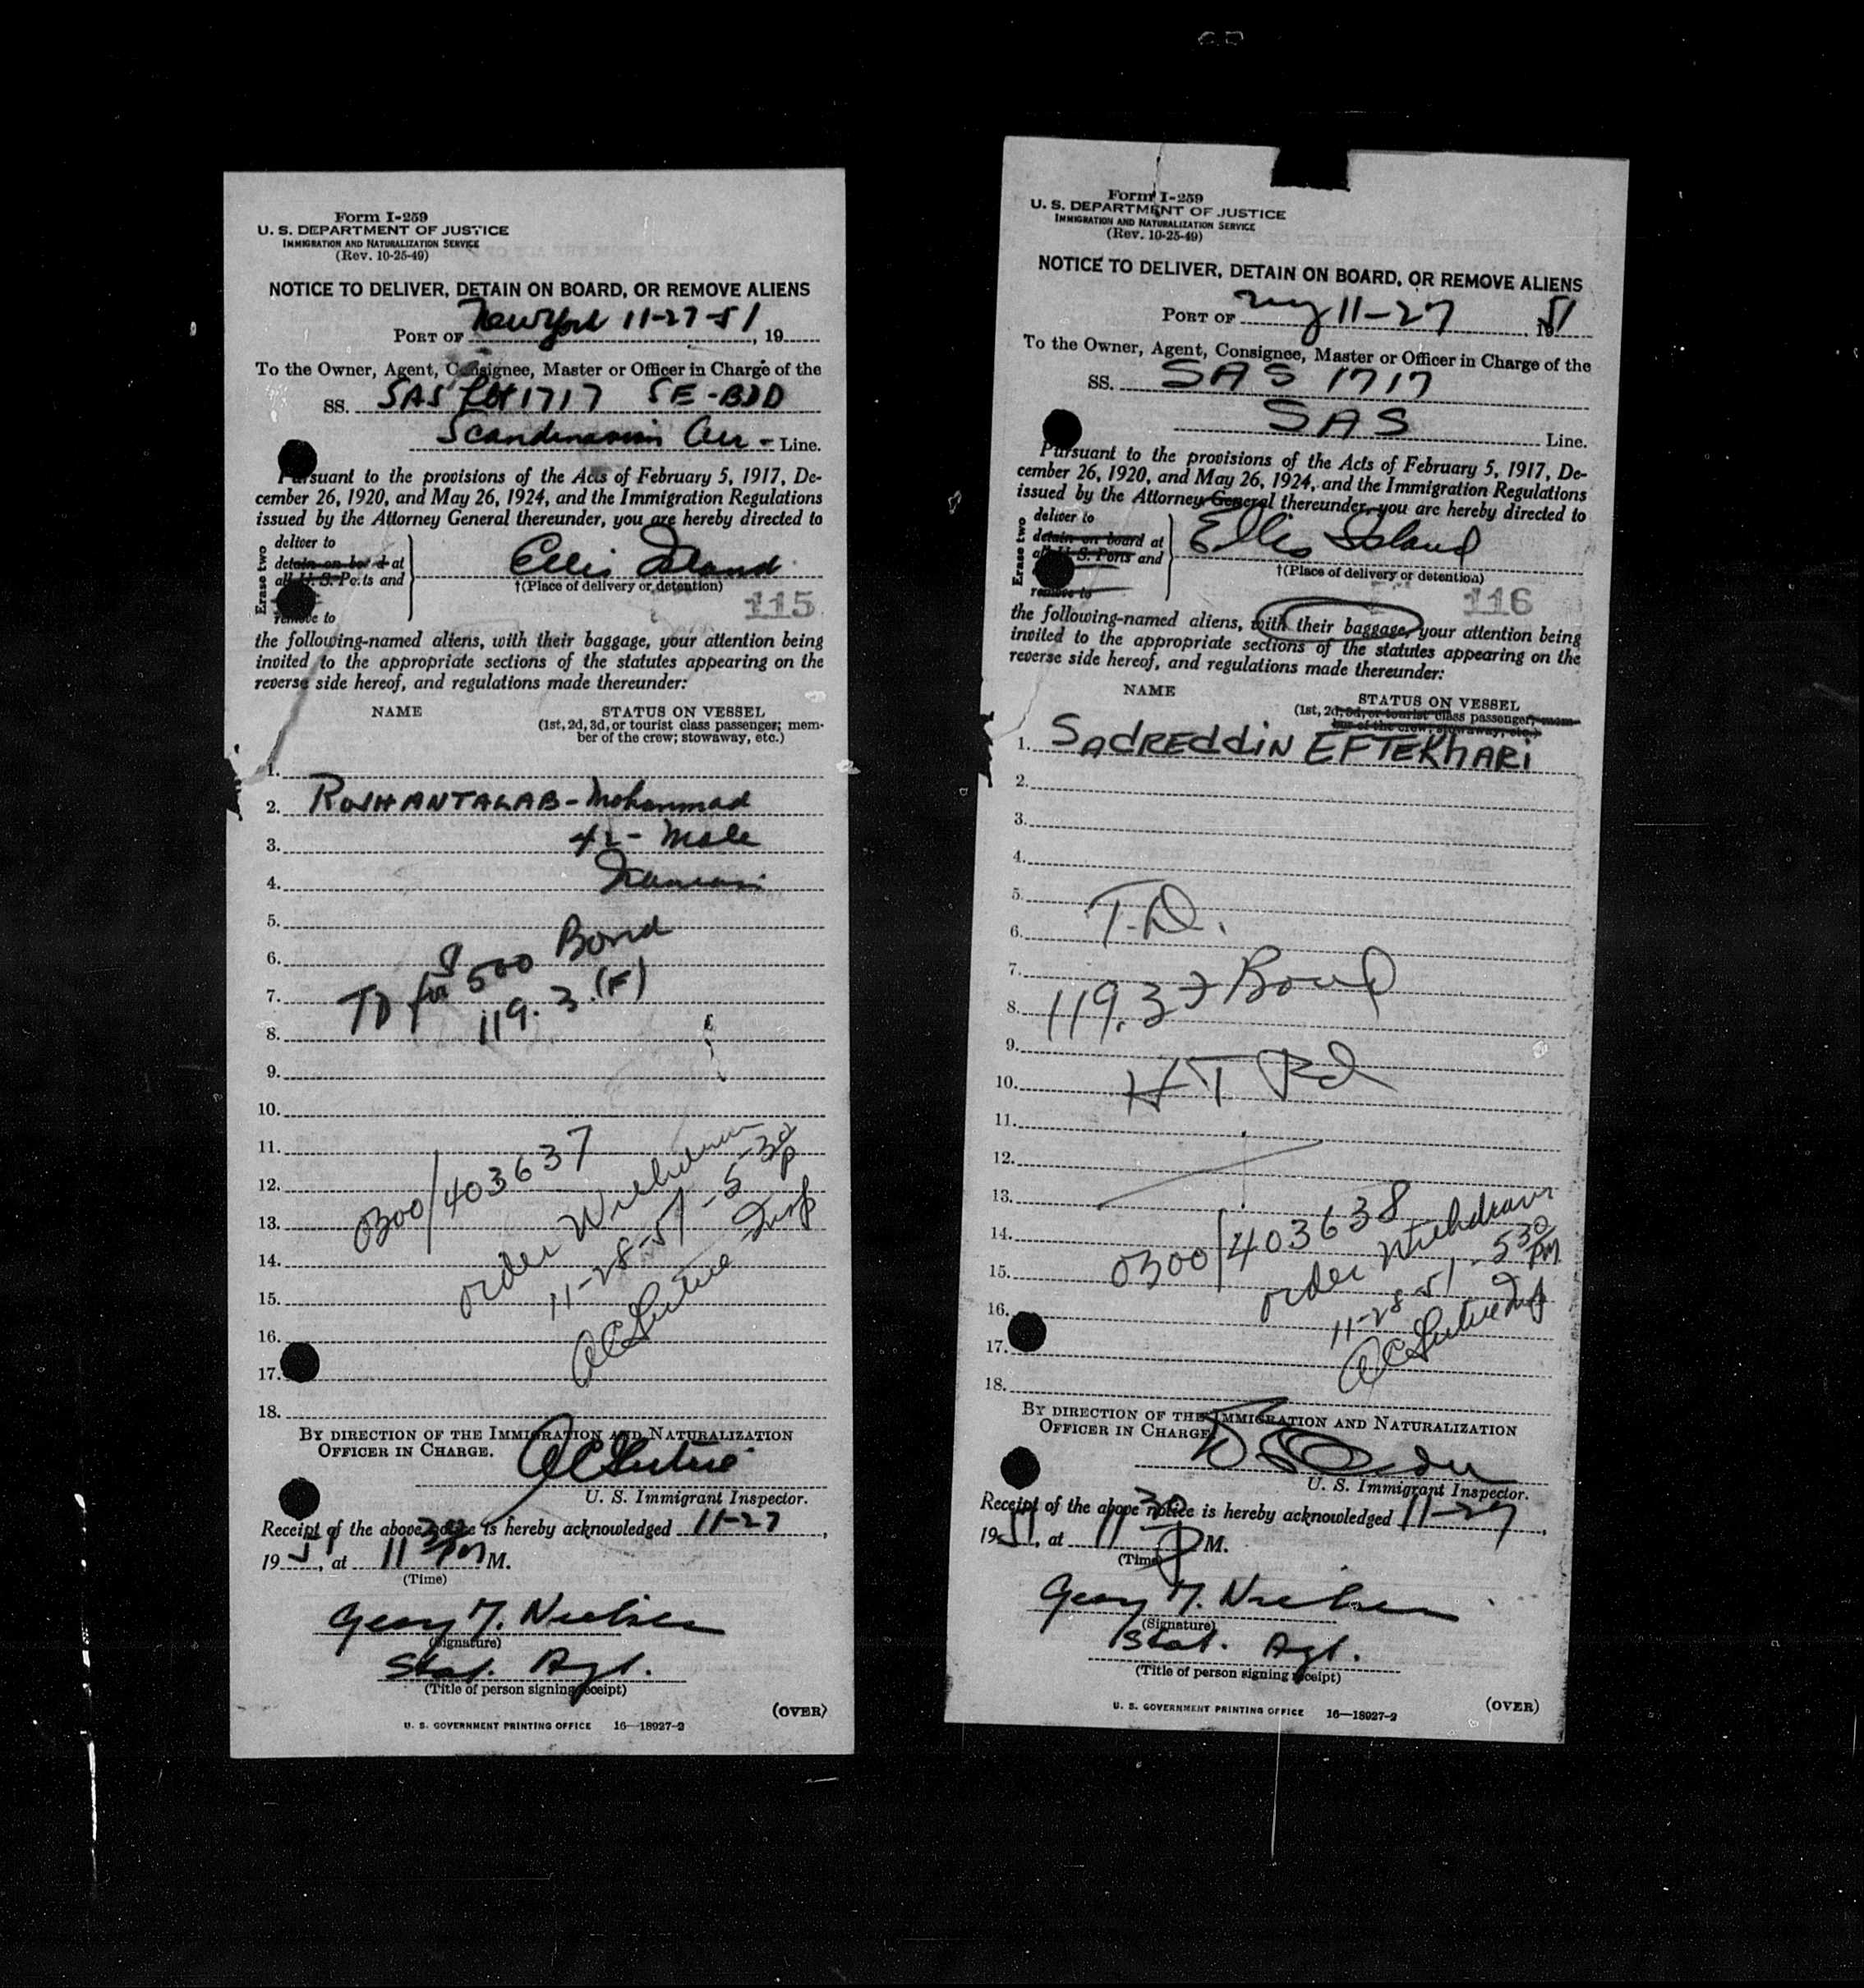 Form I-259
U. S. DEPARTMENT OF JUSTICE
IMMIGRATION AND NATURALIZATION SERVICE
(Rev. 10-25-49)
NOTICE TO DELIVER, DETAIN ON BOARD, OR REMOVE ALIENS
PORT OF New York 11-27-51, 19
To the Owner, Agent, Consignee, Master or Officer in Charge of the
SS. SAS 1717 SE-BDD
Scandinavian Air - Line.
Pursuant to the provisions of the Acts of February 5, 1917, De-
cember 26, 1920, and May 26, 1924, and the Immigration Regulations
issued by the Attorney General thereunder, you are hereby directed to
Erase two
deliver to
detain on board at
all U. S. Ports and
remove to
Ellis Island
†(Place of delivery or detention)
115
the following-named aliens, with their baggage, your attention being
invited to the appropriate sections of the statutes appearing on the
reverse side hereof, and regulations made thereunder:
NAME
STATUS ON VESSEL
(1st, 2d, 3d, or tourist class passenger; mem-
ber of the crew; stowaway, etc.)
1.
2. ROSHANTALAB - Mohammad
3. 42 - Male
4. Iranian
5.
6.
7. TD for $500 Bond
8. 119.3 (F)
9.
10.
11.
12.
13. 0300/403637
14. order Withdrawn
15. 11-28-51 - 5-30 P
16. Insp
17.
18.
BY DIRECTION OF THE IMMIGRATION AND NATURALIZATION
OFFICER IN CHARGE.
U. S. Immigrant Inspector.
Receipt of the above notice is hereby acknowledged 11-27,
1951, at 11 30 PM M.
(Time)
Geory T. Nielsen
(Signature)
Stat. Agt.
(Title of person signing receipt)
(OVER)
U. S. GOVERNMENT PRINTING OFFICE 16—18927-2
Form I-259
U. S. DEPARTMENT OF JUSTICE
IMMIGRATION AND NATURALIZATION SERVICE
(Rev. 10-25-49)
NOTICE TO DELIVER, DETAIN ON BOARD, OR REMOVE ALIENS
PORT OF NY 11-27, 1951
To the Owner, Agent, Consignee, Master or Officer in Charge of the
SS. SAS 1717
SAS Line.
Pursuant to the provisions of the Acts of February 5, 1917, De-
cember 26, 1920, and May 26, 1924, and the Immigration Regulations
issued by the Attorney General thereunder, you are hereby directed to
Erase two
deliver to
detain on board at
all U. S. Ports and
remove to
Ellis Island
†(Place of delivery or detention)
116
the following-named aliens, with their baggage, your attention being
invited to the appropriate sections of the statutes appearing on the
reverse side hereof, and regulations made thereunder:
NAME
STATUS ON VESSEL
(1st, 2d, 3d, or tourist class passenger; mem-
ber of the crew; stowaway, etc.)
1. SADREDDIN EFTEKHARI
2.
3.
4.
5.
6. T.D.
7.
8. 119.3 F Bond
9.
10. HT
11.
12.
13.
14. 0300/403638
15. order Withdrawn
16. 11-28-51 - 5 30 PM
17. Insp
18.
BY DIRECTION OF THE IMMIGRATION AND NATURALIZATION
OFFICER IN CHARGE.
U. S. Immigrant Inspector.
Receipt of the above notice is hereby acknowledged 11-27,
1951, at 11 30 P M.
(Time)
Geory T. Nielsen
(Signature)
Stat. Agt.
(Title of person signing receipt)
(OVER)
U. S. GOVERNMENT PRINTING OFFICE 16—18927-2